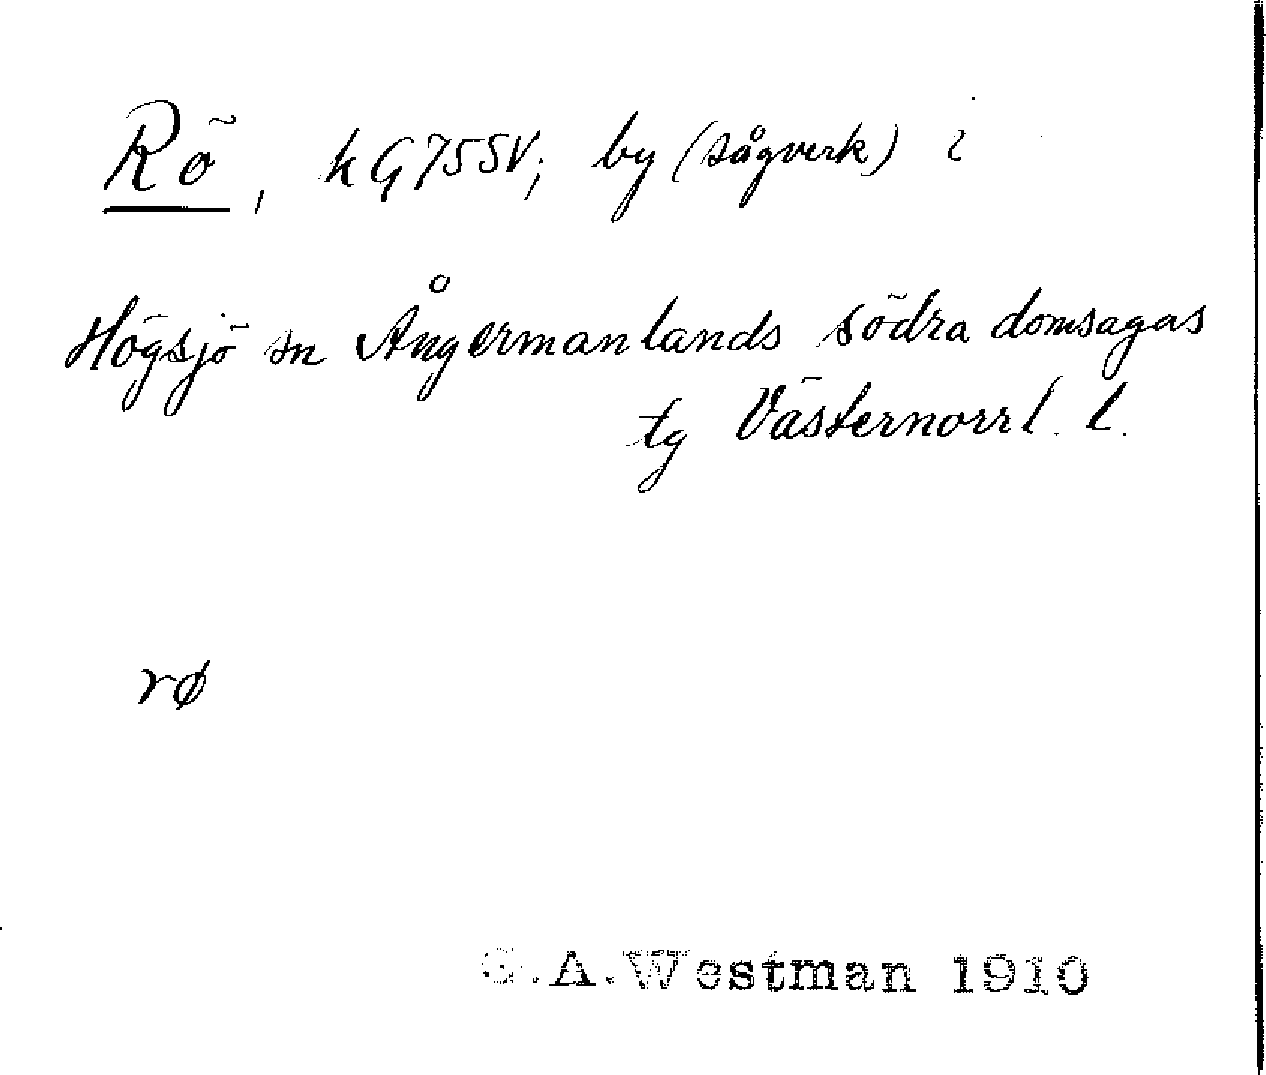 Rö, kG75SV; by (sågverk) i
Högsjö sn Ångermanlands södra domsagas
tg Västernorrl. l.
rø
G.A.Westman 1910